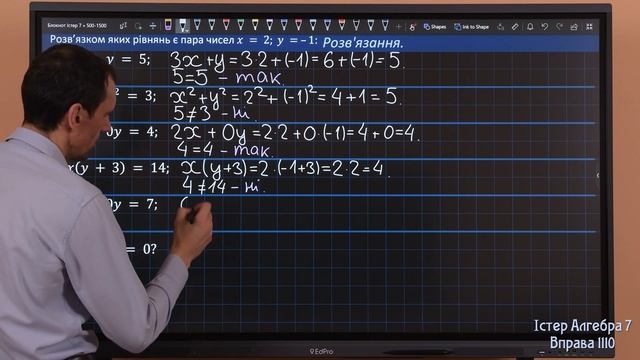 Блокнот істер 7 = 500-1500
Shapes
Ink to Shape
Розв'язком яких рівнянь є пара чисел x = 2; y = -1: Розв'язання.
y = 5; 3x+y=3·2+(-1)=6+(-1)=5.
5=5 - так.
² = 3; x²+y²=2²+(-1)²=4+1=5.
5≠3 - ні.
0y = 4; 2x+0y=2·2+0·(-1)=4+0=4.
4=4 - так.
x(y + 3) = 14; x(y+3)=2·(-1+3)=2·2=4.
4≠14 - ні.
0y = 7; (
= 0?
EdPro
Істер Алгебра 7
Вправа 1110